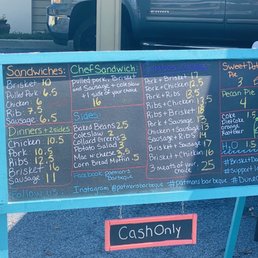 Sandwiches:
Brisket 10
Pulled Pork 6.5
Chicken 6
Rib 7.5
Sausage 6.5
Dinners + 2 sides
Chicken 10.5
Pork 10.5
Ribs 12.5
Brisket 16
Sausage 11
Follow us
Chef Sandwich:
pulled pork, brisket
and Sausage + coleslaw
+ 1 side of your choice
16
Sides
Baked Beans 2.5
Coleslaw 2
Collard Greens 3
Potato Salad 3
Mac n Cheese 3.5
Corn Bread Muffin .5
Facebook patmans
barbeque
Instagram @patmansbarbeque
Pork + Brisket 17
Pork + Chicken 12.5
Pork + Ribs 13.5
Ribs + Chicken 13.5
Ribs + Brisket 18
Pork + Sausage 13
Chicken + Sausage 13
Ribs + Sausage 14
Brisket + Sausage 17
Chicken + Brisket 16
3 meats
of your choice 25
@patmansbarbeque
Sweet Potato
Pie 3
Pecan Pie
4
Coke
Diet Coke
orange
H2O 1.5
Cash Only